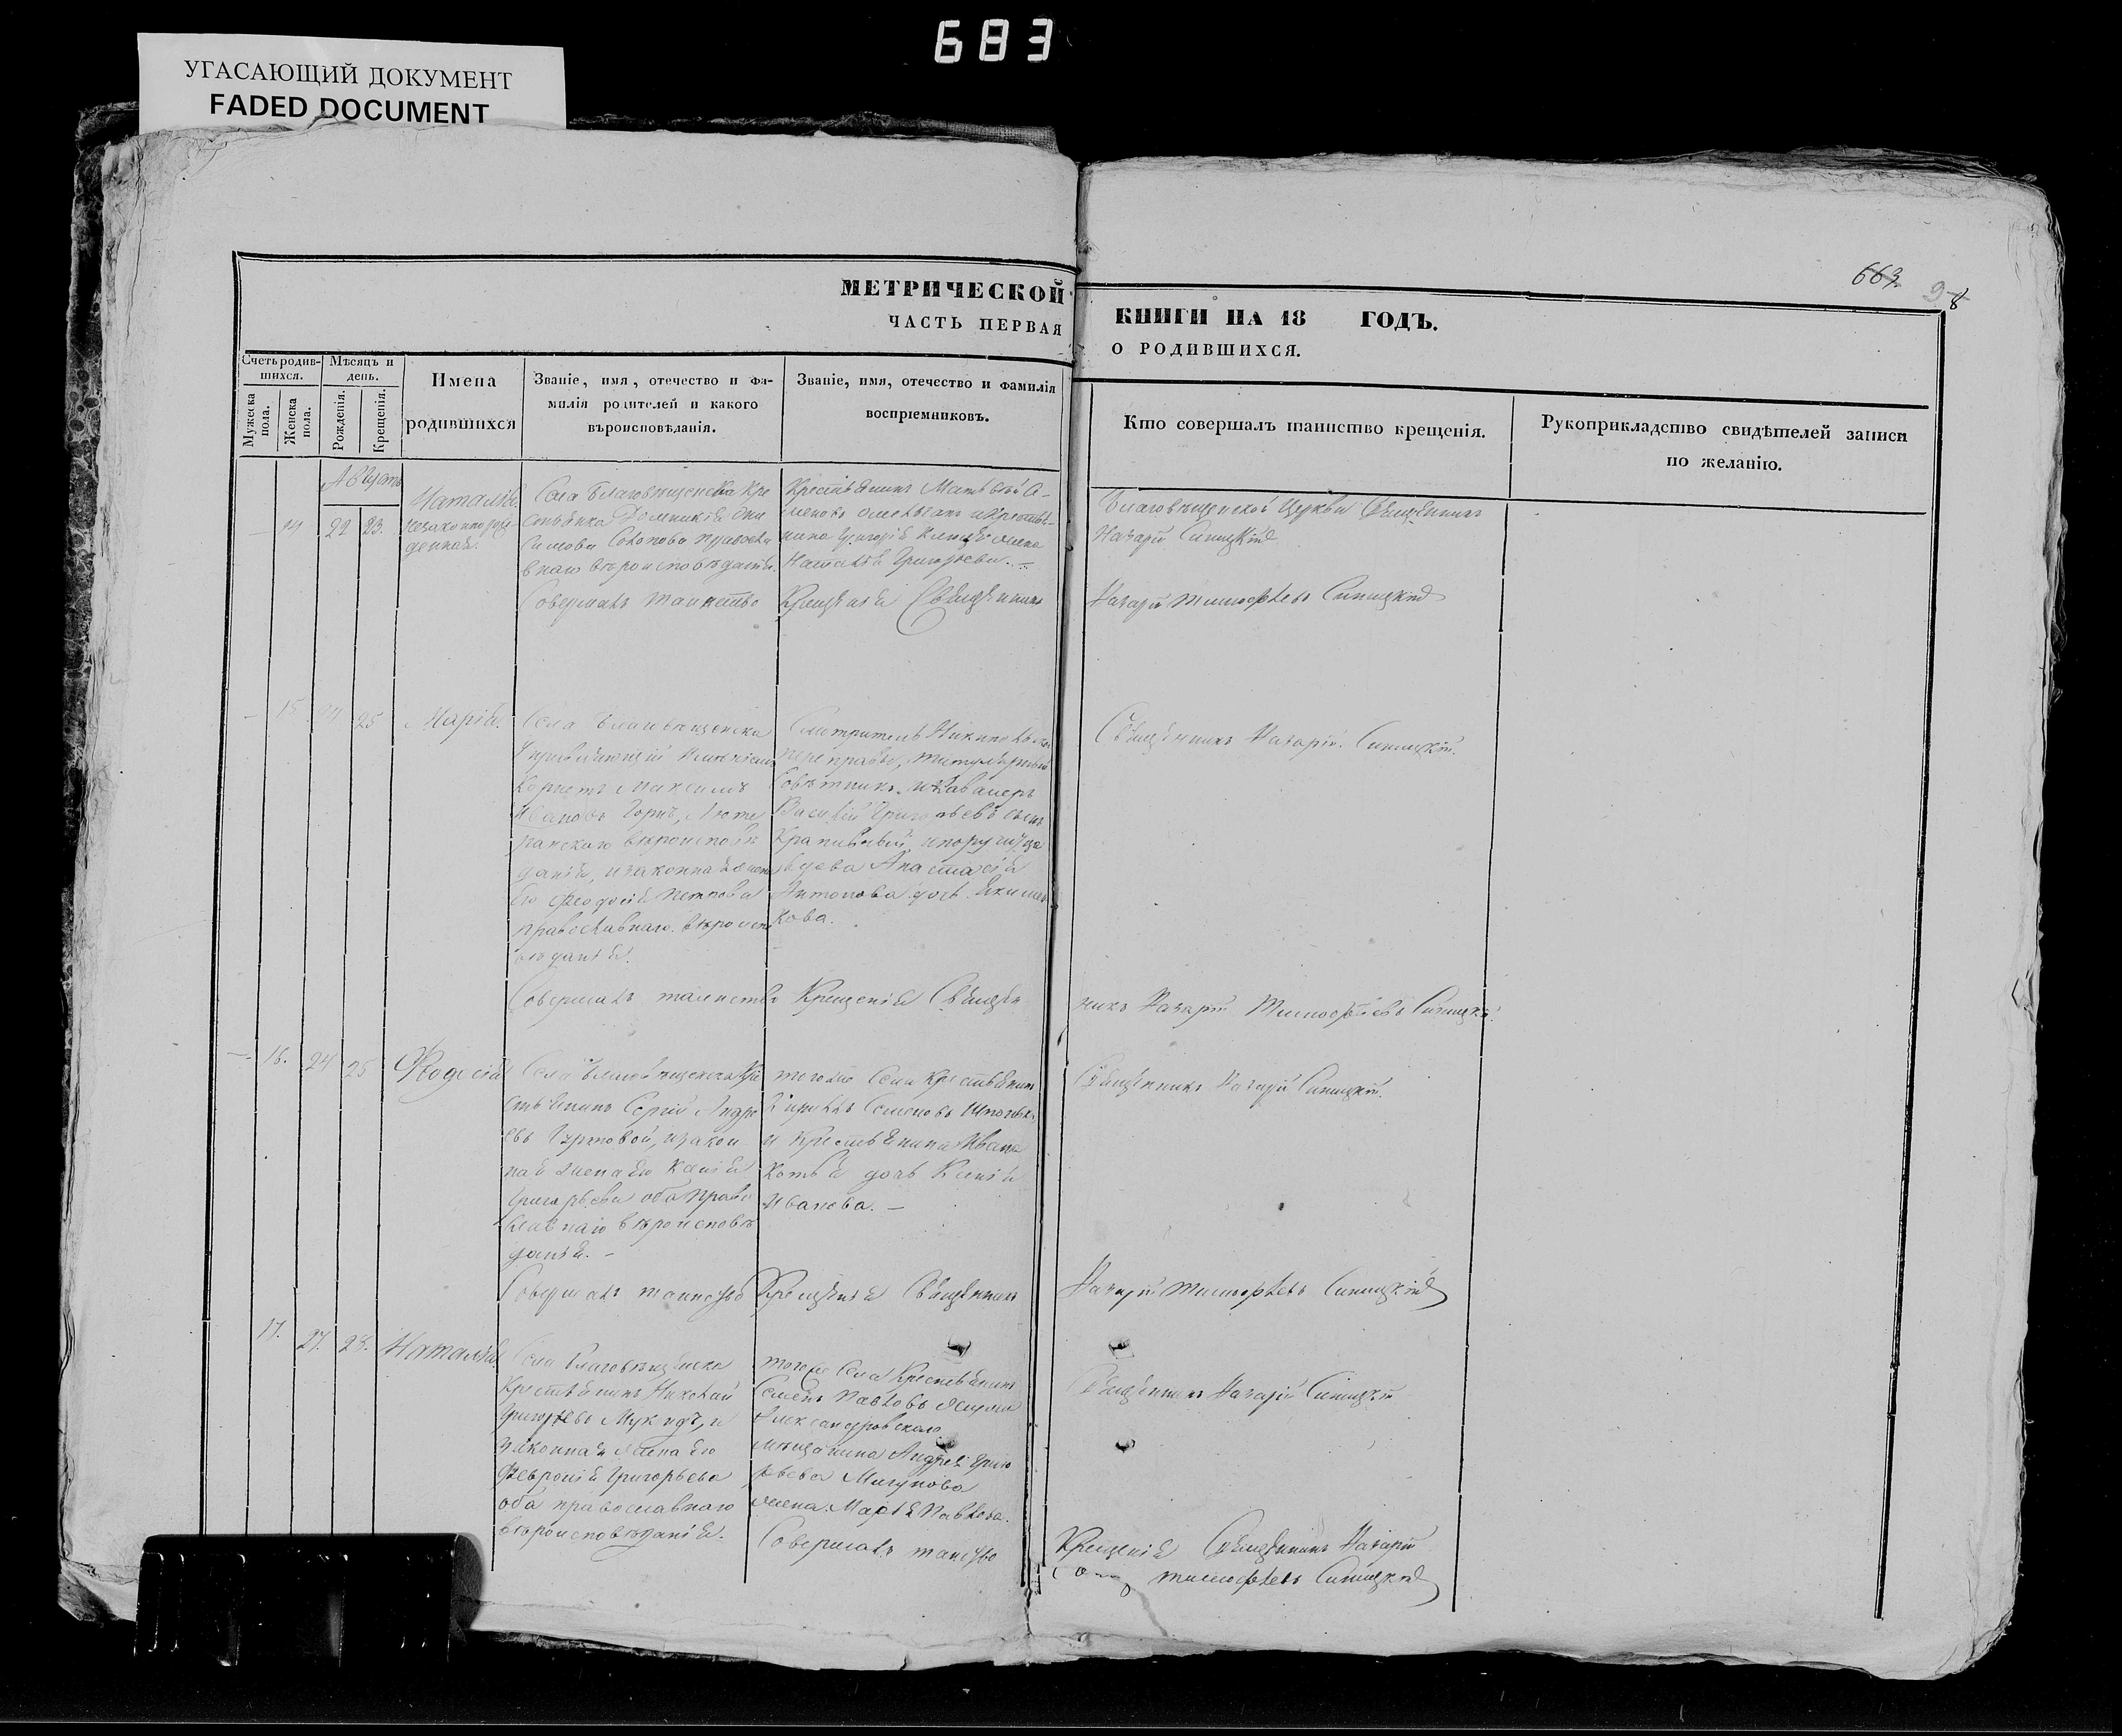 683
УГАСАЮЩИЙ ДОКУМЕНТ
FADED DOCUMENT
663
8
МЕТРИЧЕСКОЙ КНИГИ НА 18 ГОДЪ.
ЧАСТЬ ПЕРВАЯ О РОДИВШИХСЯ.
Счетъ родив-
шихся.
Мужеска
пола.
Женска
пола.
Мѣсяцъ и
день.
Рожденія.
Крещенія.
Имена
родившихся
Званіе, имя, отечество и фа-
милія родителей и какого
вѣроисповѣданія.
Званіе, имя, отечество и фамилія
воспріемниковъ.
Кто совершалъ таинство крещенія.
Рукоприкладство свидѣтелей записи
по желанію.
Августъ
14 22 23.
Наталія
незаконнорож-
денная.
Села Благовѣщенска Кре
стьянка Домникія Они
симова Сокопова православ
внаго вѣроисповѣданія.
Крестьянинъ Матвѣй С-
меновъ и Крестья-
нина Григорія жена
Наталія Григорьева.
Благовѣщенской Церкви Священникъ
Назарій Синицкій
Совершалъ таинство Крещенія Священникъ Назарій Тимофѣевъ Синицкій
15 24 25
Марія.
Села Благовѣщенска
Управляющій имѣніемъ
Корнетъ Максимъ
Ивановъ Горнъ, Люте
ранскаго вѣроисповѣ
данія, и законная жена
его Феодосія Петрова
православнаго вѣроиспо
вѣданія.
Смотритель Никопольской
переправы, титулярный
Совѣтникъ и Кавалеръ
Василій Григорьевъ сынъ
Крапивный, и поручица
вдова Анастасія
Антонова дочь Якимен
кова.
Священникъ Назарій Синицкій.
Совершалъ таинство Крещенія Священ никъ Назарій Тимофѣевъ Синицкій.
16. 24 25
Феодосія
Села Благовѣщенска Кре
стьянинъ Сергій Андре
евъ Гуртовой, и закон
ная жена его Ксенія
Григорьева оба право
славнаго вѣроисповѣ
данія.
того же Села Крестьянинъ
Кириллъ Семеновъ
и Крестьянина Ивана
дочь Ксенія
Иванова.
Священникъ Назарій Синицкій.
Совершалъ таинство Крещенія Священникъ Назарій Тимофѣевъ Синицкій
17. 27. 28.
Наталія
Села Благовѣщенска
Крестьянинъ Николай
Григорьевъ и
законная жена его
Февронія Григорьева
оба православнаго
вѣроисповѣданія.
того же Села Крестьянинъ
Семенъ Павловъ
Александровскаго
мѣщанина Андрея Григо
рьева Мигунова
жена Марія Павлова.
Священникъ Назарій Синицкій
Совершалъ таинство Крещенія Священникъ Назарій
Тимофѣевъ Синицкій